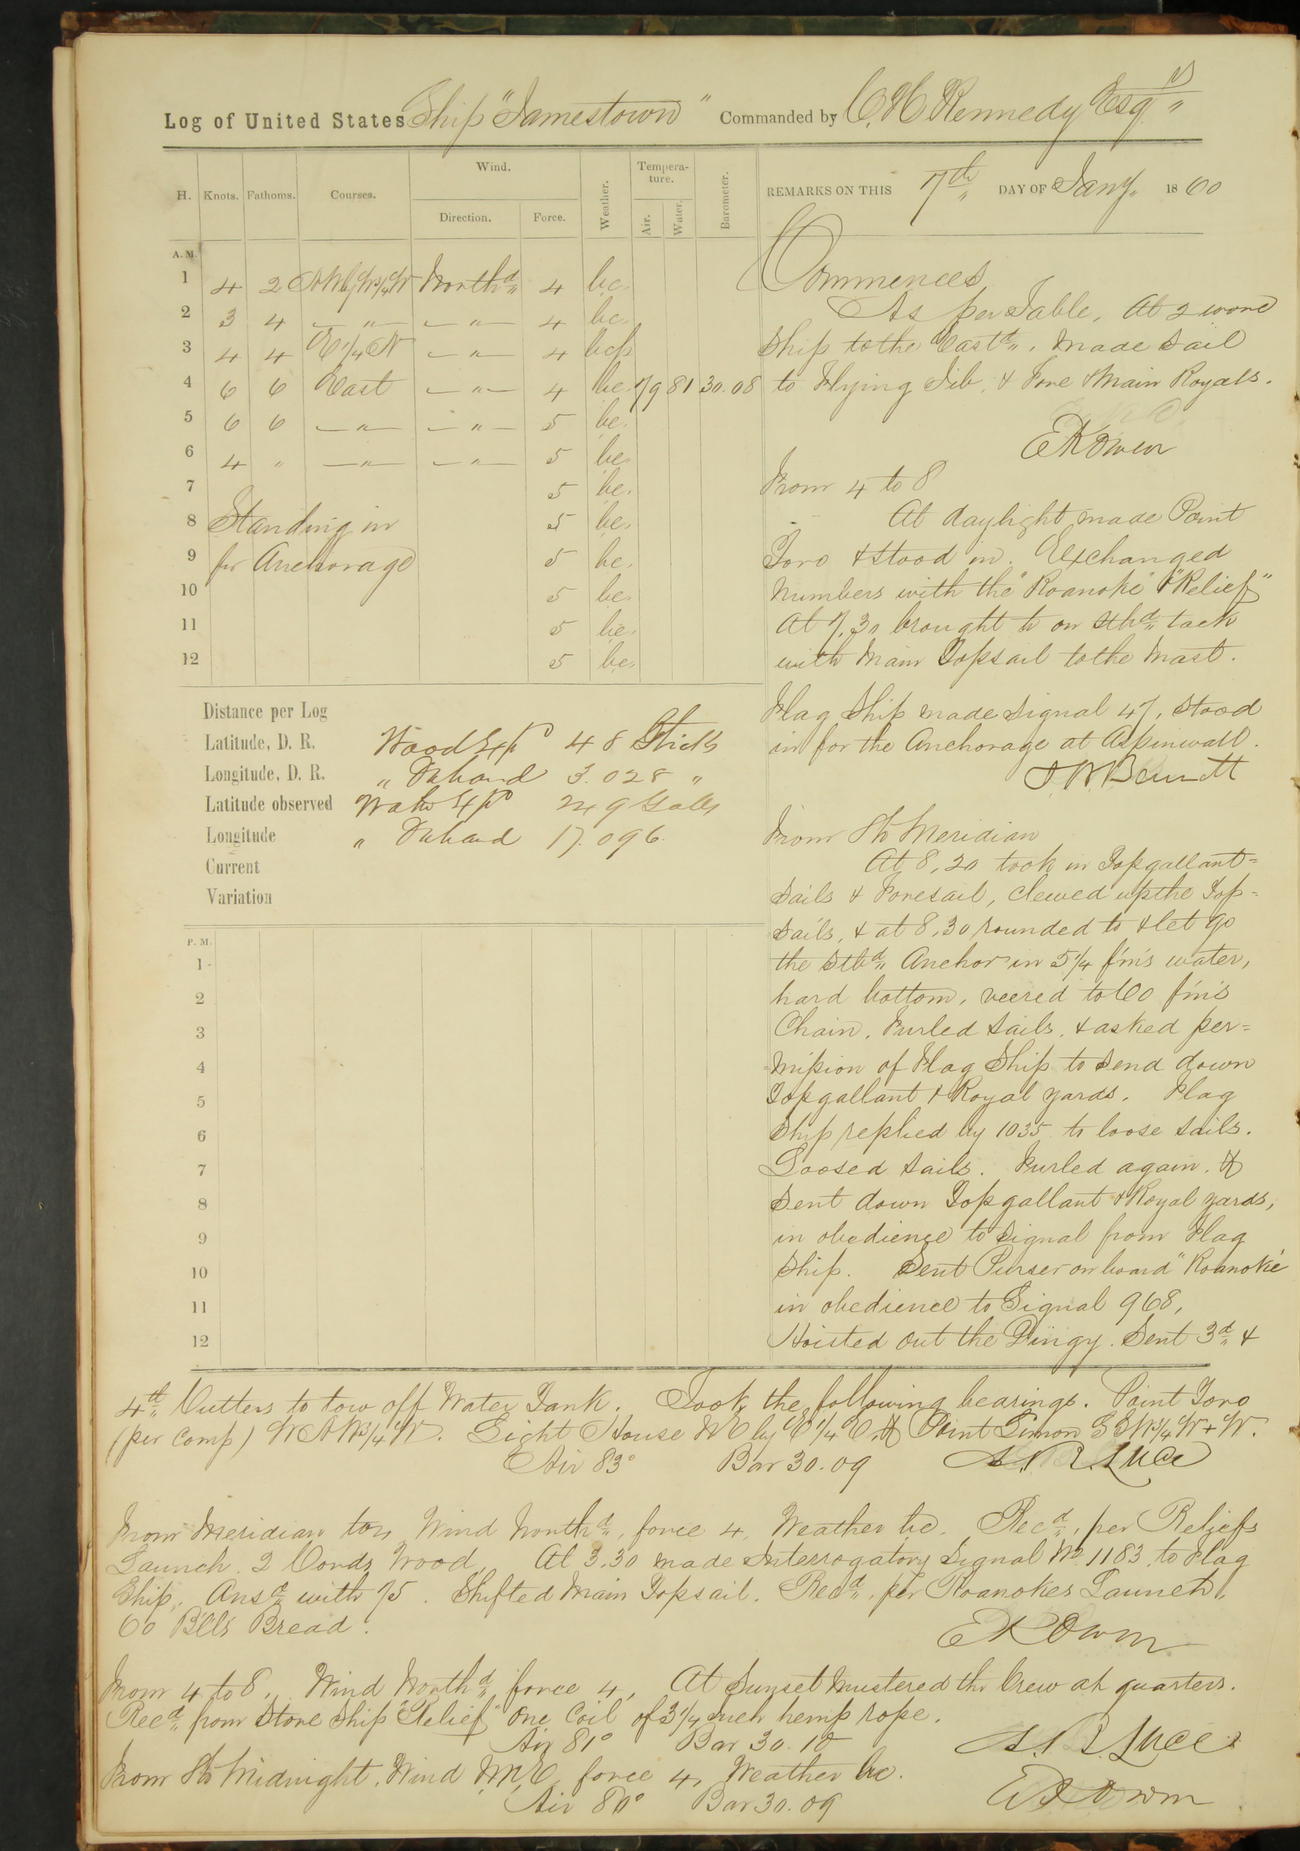 Log of United States Ship "Jamestown" Commanded by C. H. Kennedy Esqr
H. Knots. Fathoms. Courses. Wind. Direction. Force. Weather. Tempera-ture. Air. Water. Barometer.
REMARKS ON THIS 7th DAY OF Jany. 1860
A.M.
1 4 2 NWbyW3/4W Northd 4 bc.
2 3 4 — " — — " — 4 bc.
3 4 4 E1/4N — " — 4 bcp
4 6 6 East — " — 4 bc 79 81 30.08
5 6 6 — " — — " — 5 bc.
6 4 " — " — — " — 5 bc.
7 5 bc.
8 Standing in 5 bc.
9 for Anchorage 5 bc.
10 5 bc.
11 5 bc.
12 5 bc.
Distance per Log
Latitude, D. R. Wood Expd 48 Sticks
Longitude, D. R. " On hand 3.028 "
Latitude observed Water Expd 249 Galls
Longitude " On hand 17.096.
Current
Variation
P.M.
1
2
3
4
5
6
7
8
9
10
11
12
Commences
As per Table. At 2 wore
Ship to the Eastd. made sail
to Flying Jib, & Fore & Main Royals.
E K Owen
From 4 to 8
At daylight made Point
Toro & stood in. Exchanged
numbers with the "Roanoke" & "Relief"
At 7.30 brought to on Stbd tack
with Main Topsail to the Mast.
Flag Ship made signal 47, stood
in for the Anchorage at Aspinwall.
J. W. Bennett
From 8 to Meridian
At 8.20 took in Topgallant=
sails & Foresail, clewed up the Top=
sails, & at 8.30 rounded to & let go
the Stbd Anchor in 5 1/4 fms water,
hard bottom, veered to 60 fms
Chain. Furled sails, & asked per=
mission of Flag Ship to send down
Topgallant & Royal yards. Flag
Ship replied by 1035 to loose sails.
Loosed sails. Furled again. &
sent down Topgallant & Royal yards,
in obedience to signal from Flag
Ship. Sent Purser on board "Roanoke"
in obedience to Signal 968,
Hoisted out the Dingy. Sent 3d &
4th Cutters to tow off Water Tank. Took the following bearings. Point Toro
(per comp) WNW3/4W. Light House NE by E1/4E. & Point Limon SSW3/4W+W.
Air 83° Bar 30.09 S. B. Luce
From Meridian to 4, Wind Northd, force 4, Weather bc. Recd, per Reliefs
Launch 2 Cords Wood. At 3.30 made Interrogatory Signal No 1183 to Flag
Ship. Ansd with 75. Shifted Main Topsail. Recd, per Roanokes Launch,
60 Bbls Bread.
E K Owen
From 4 to 8, Wind Northd force 4, At Sunset mustered the Crew at quarters.
Recd from Store Ship "Relief" one Coil of 3 1/4 inch hemp rope.
Air 81° Bar 30.10 S. B. Luce
From 8 to Midnight. Wind N.N.E. force 4, Weather bc.
Air 80° Bar 30.09 E K Owen